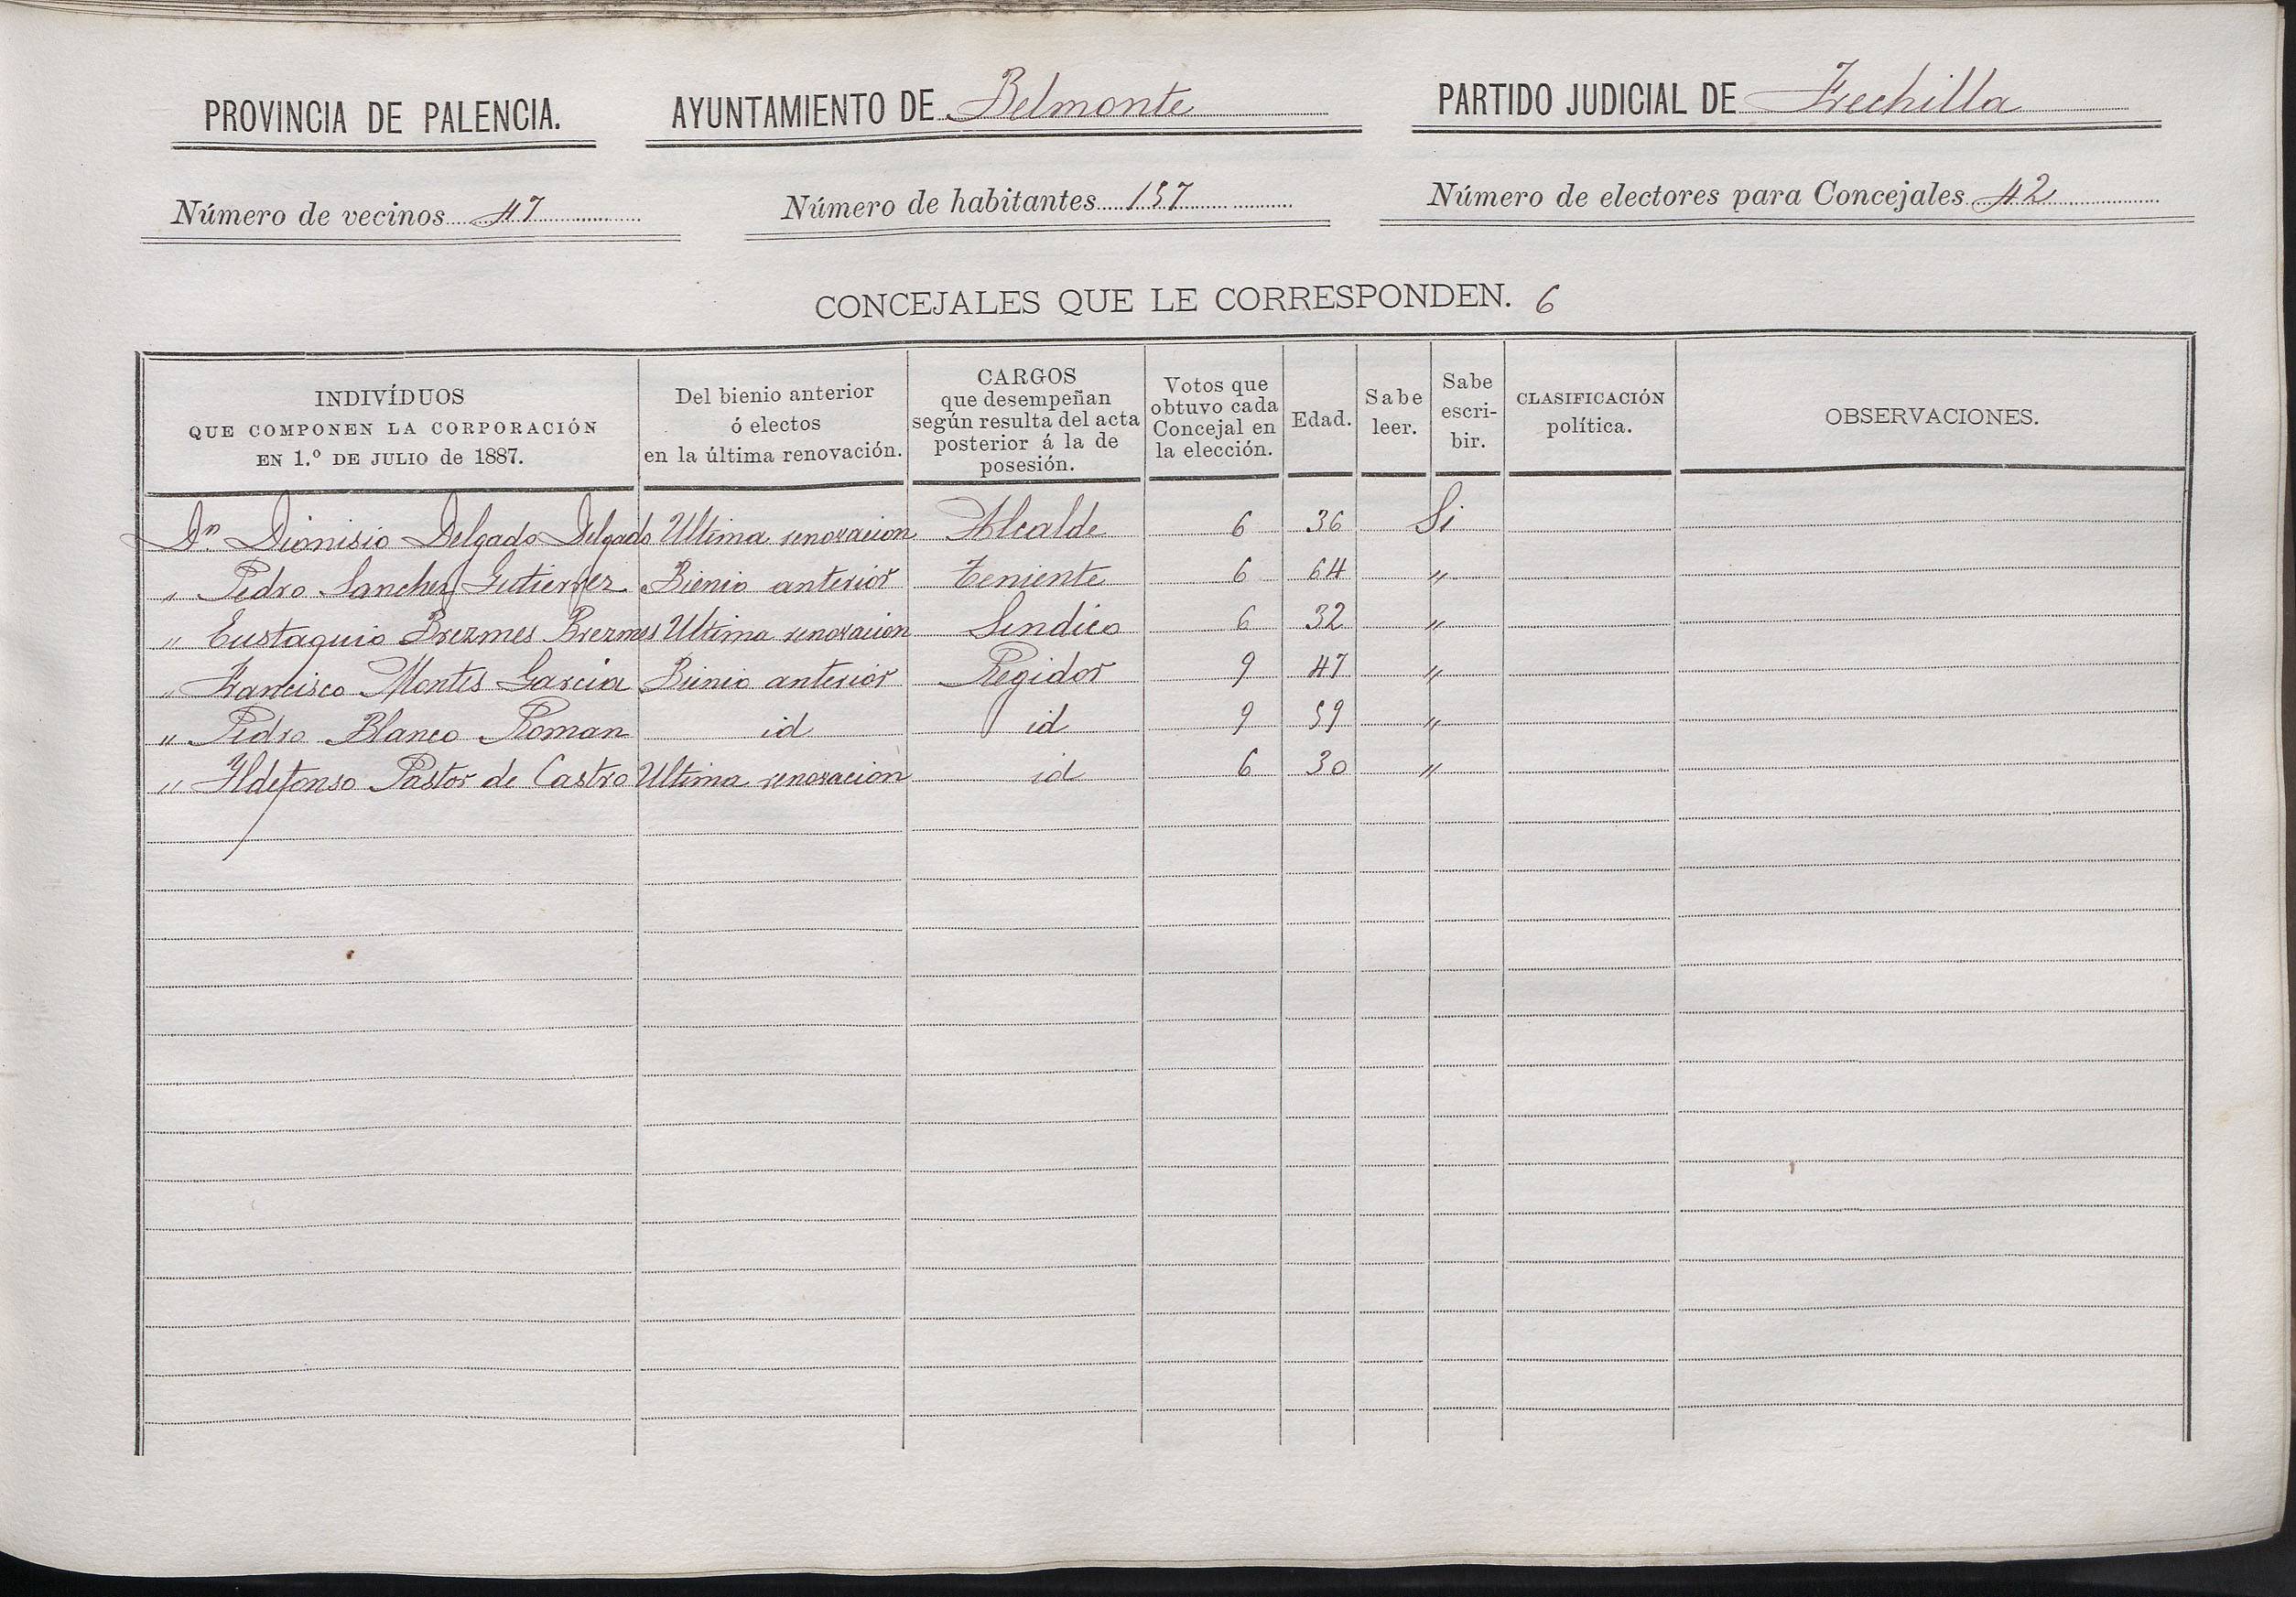 PROVINCIA DE PALENCIA. AYUNTAMIENTO DE Belmonte PARTIDO JUDICIAL DE Frechilla
Número de vecinos 47 Número de habitantes 157 Número de electores para Concejales 42
CONCEJALES QUE LE CORRESPONDEN. 6
INDIVÍDUOS
QUE COMPONEN LA CORPORACIÓN
EN 1.º DE JULIO de 1887.
Del bienio anterior
ó electos
en la última renovación.
CARGOS
que desempeñan
según resulta del acta
posterior á la de
posesión.
Votos que
obtuvo cada
Concejal en
la elección.
Edad.
Sabe
leer.
Sabe
escri-
bir.
CLASIFICACIÓN
política.
OBSERVACIONES.
Dn. Dionisio Delgado Delgado Ultima renovacion Alcalde 6 36 Si
" Pedro Sanchez Gutierrez Bienio anterior Teniente 6 64 "
" Eustaquio Brezmes Brezmes Ultima renovacion Sindico 6 32 "
" Francisco Montes Garcia Bienio anterior Regidor 9 47 "
" Pedro Blanco Roman id id 9 59 "
" Ildefonso Pastor de Castro Ultima renovacion id 6 30 "